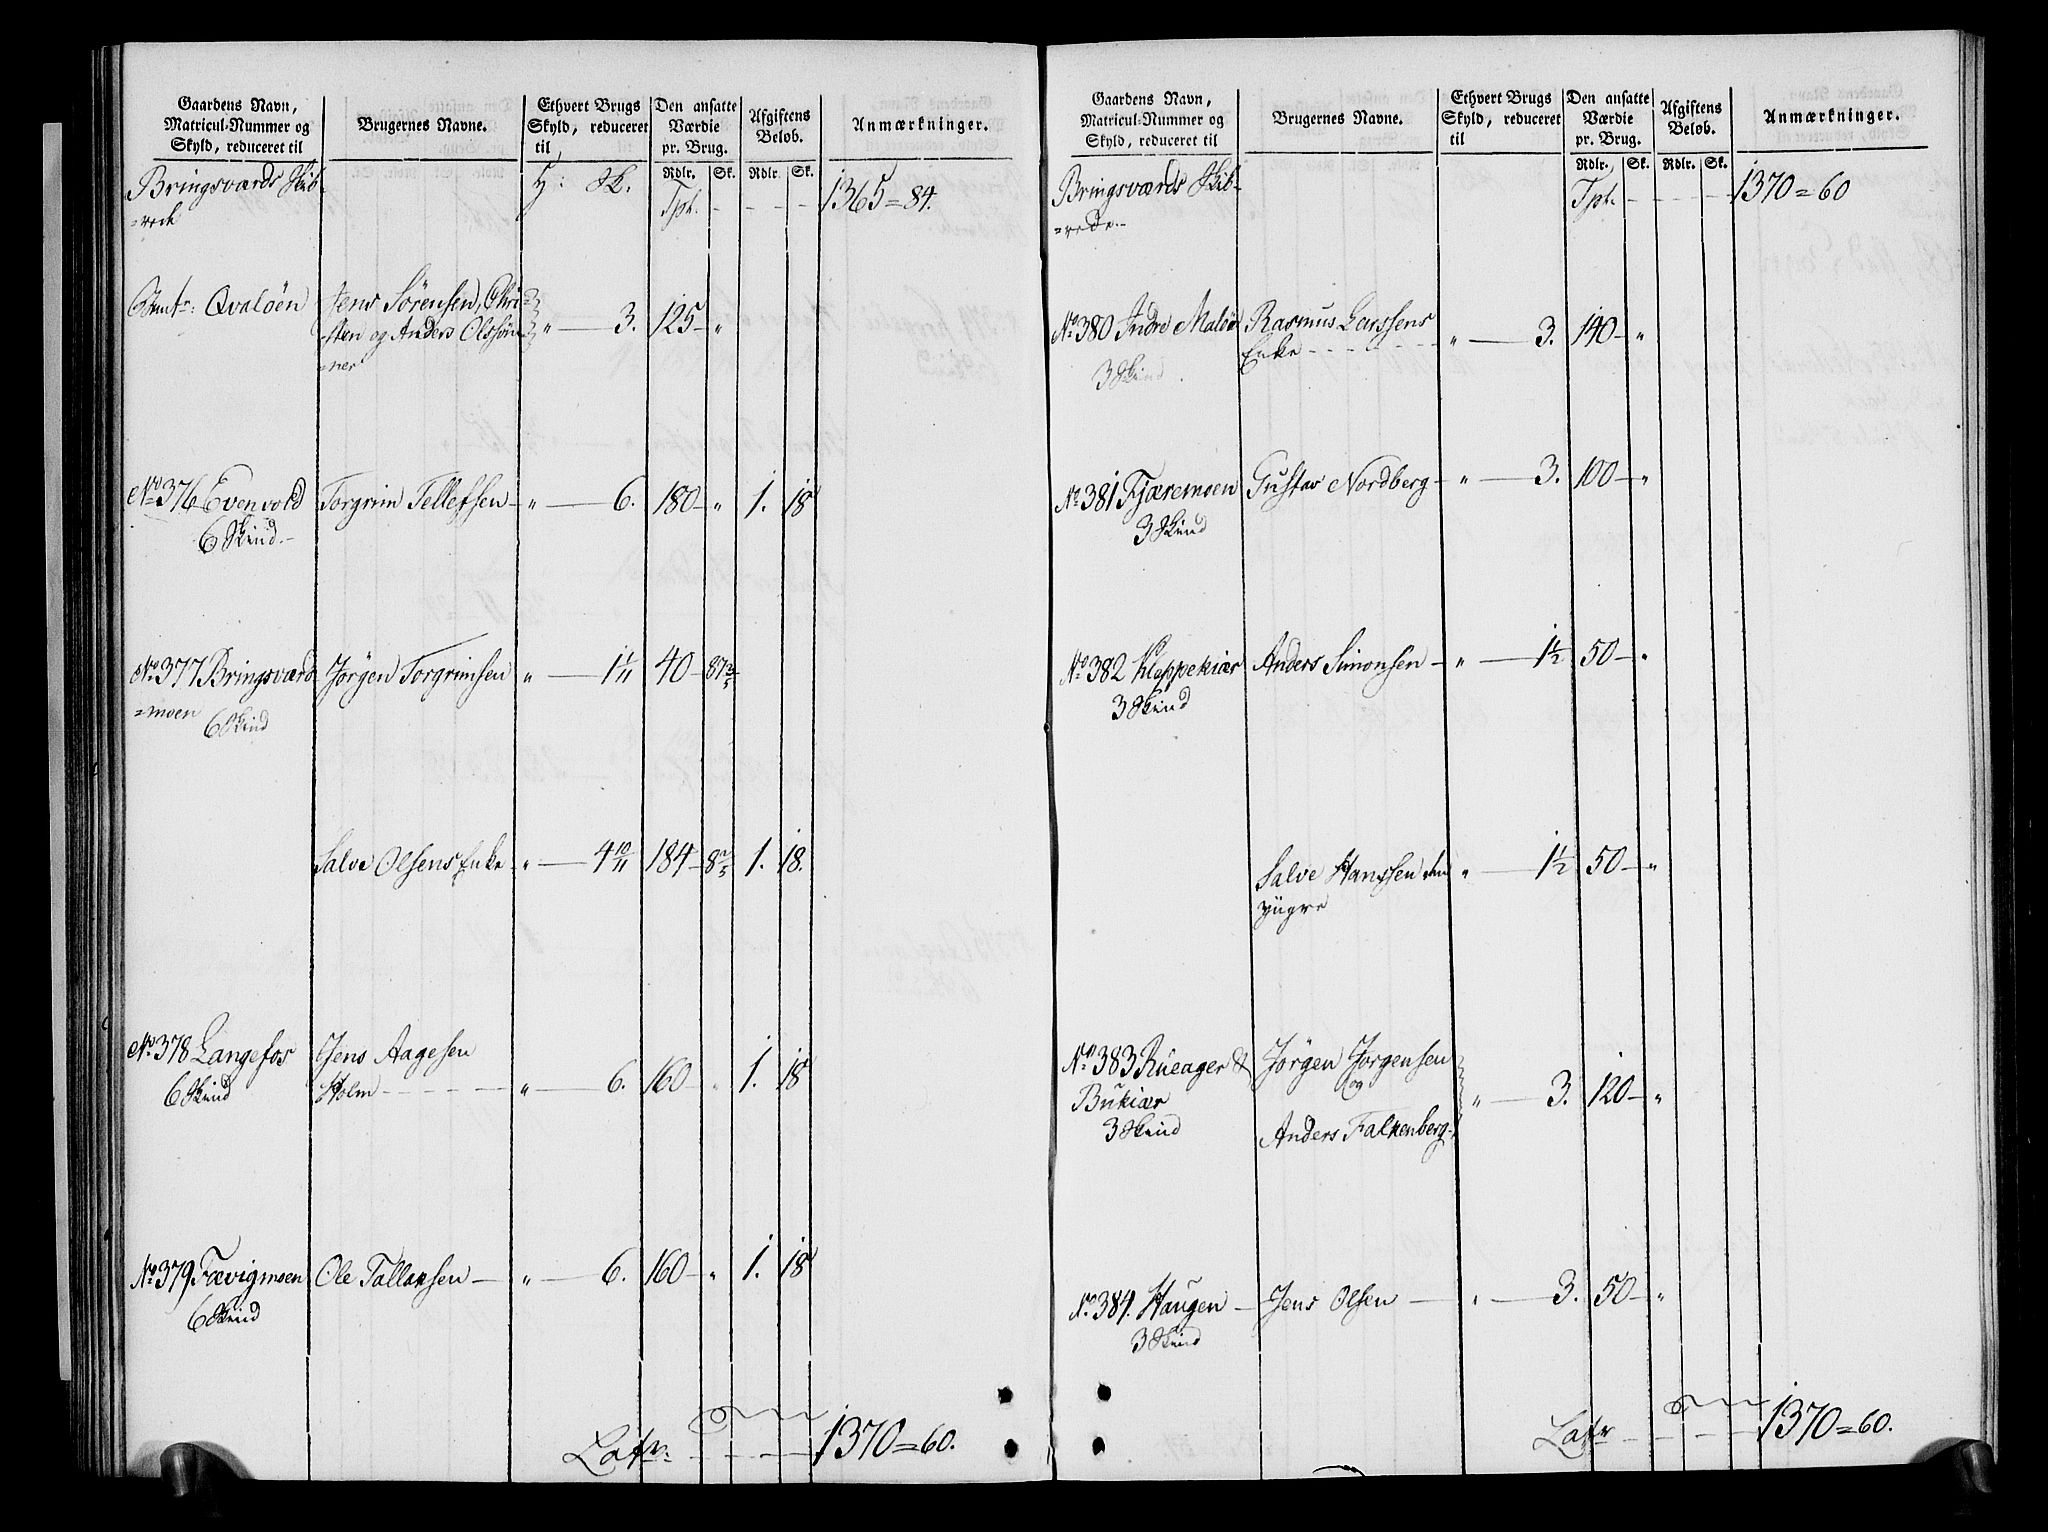 Gaardens Navn, Matricul-Nummer og Skyld, reduceret til | Brugernes Navne. | Ethvert Brugs Skyld, reduceret til | Den ansatte Værdie pr. Brug. | Afgiftens Beløb. | Anmærkninger.
Rdlr. Sk. Rdlr. Sk.
Bringsværds Skib- H: Sk. Tpt. - - - - 1365=84.
=rede
Qvaløen Jens Sørensen, Chri
sten og Anders Olssøn " — 3. 125 - "
=ner
No 376 Evenvold Torgrim Tellefsen - " — 6. 180 - " 1. 18
6 Skind.-
No 377 Bringsværd Jørgen Torgrimsen " — 1 1/11 40 - 87 3/5
=moen
6 Skind
Salve Olsens Enke - " — 4 10/11 184 - 8 2/5 1. 18.
No 378 Langefos Jens Aagesen
6 Skind Holm - - - - " — 6. 160 - " 1. 18
No 379 Fævigmoen Ole Tallaksen — " — 6. 160 - " 1. 18
6 Skind
Latr: - - - - 1370=60.
Gaardens Navn, Matricul-Nummer og Skyld, reduceret til | Brugernes Navne. | Ethvert Brugs Skyld, reduceret til | Den ansatte Værdie pr. Brug. | Afgiftens Beløb. | Anmærkninger.
Rdlr. Sk. Rdlr. Sk.
Bringsværds Skib- Tpt. - - - - 1370=60
=rede.-
No 380 Indre Maløe Rasmus Larssens
3 Skind Enke - - - - " — 3. 140 - "
No 381 Fjæremoen Gustav Nordberg - " — 3. 100 - "
3 Skind
No 382 Kleppekiær Anders Simonsen - " — 1 1/2 50 - "
3 Skind
Salve Hanssen den " — 1 1/2 50 - "
yngre
No 383 Rueager & Jørgen Jorgensen
Bukiær og " — 3. 120 - "
3 Skind Anders Falkenberg
No 384. Haugen — Jens Olsen — " — 3. 50 - "
3 Skind
Latr - - - - 1370=60.